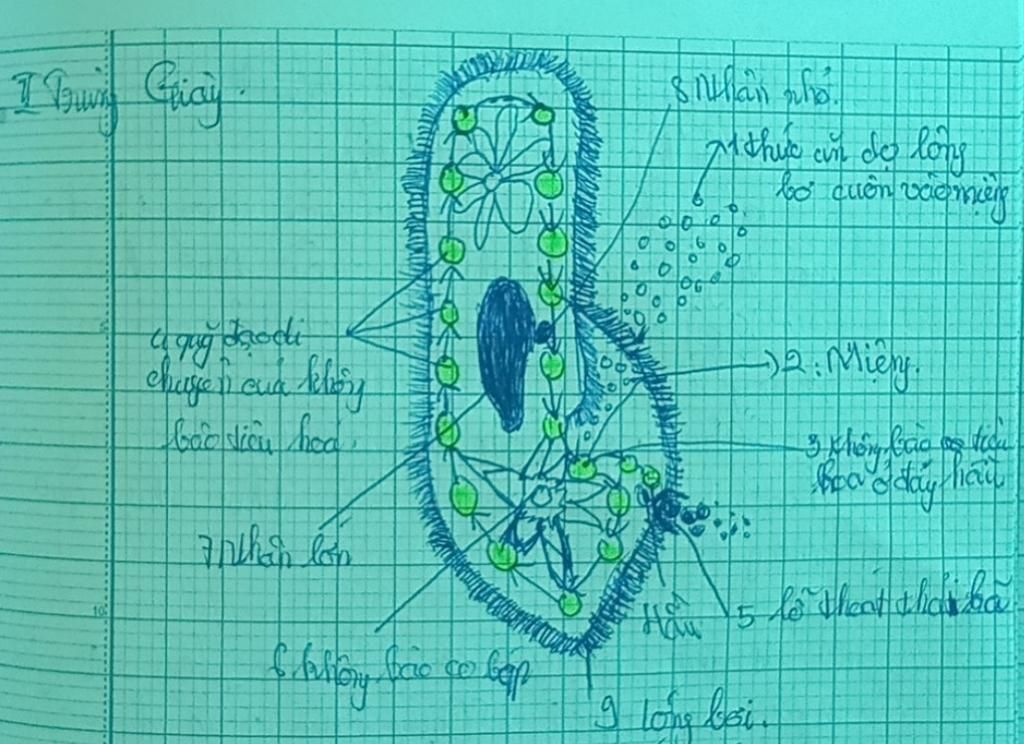 II Trùng Giày.
8 Nhân nhỏ.
1 thức ăn dọ lông
bơi cuốn vào miệng
4 quỹ đạo di
chuyển của không
bào tiêu hoá.
2: Miệng.
3 không bào tiêu
hoá ở đáy hầu
7 Nhân lớn
Hầu
5 lỗ thoát thải bã
6 không bào co bóp
9 lông bơi.
5
10